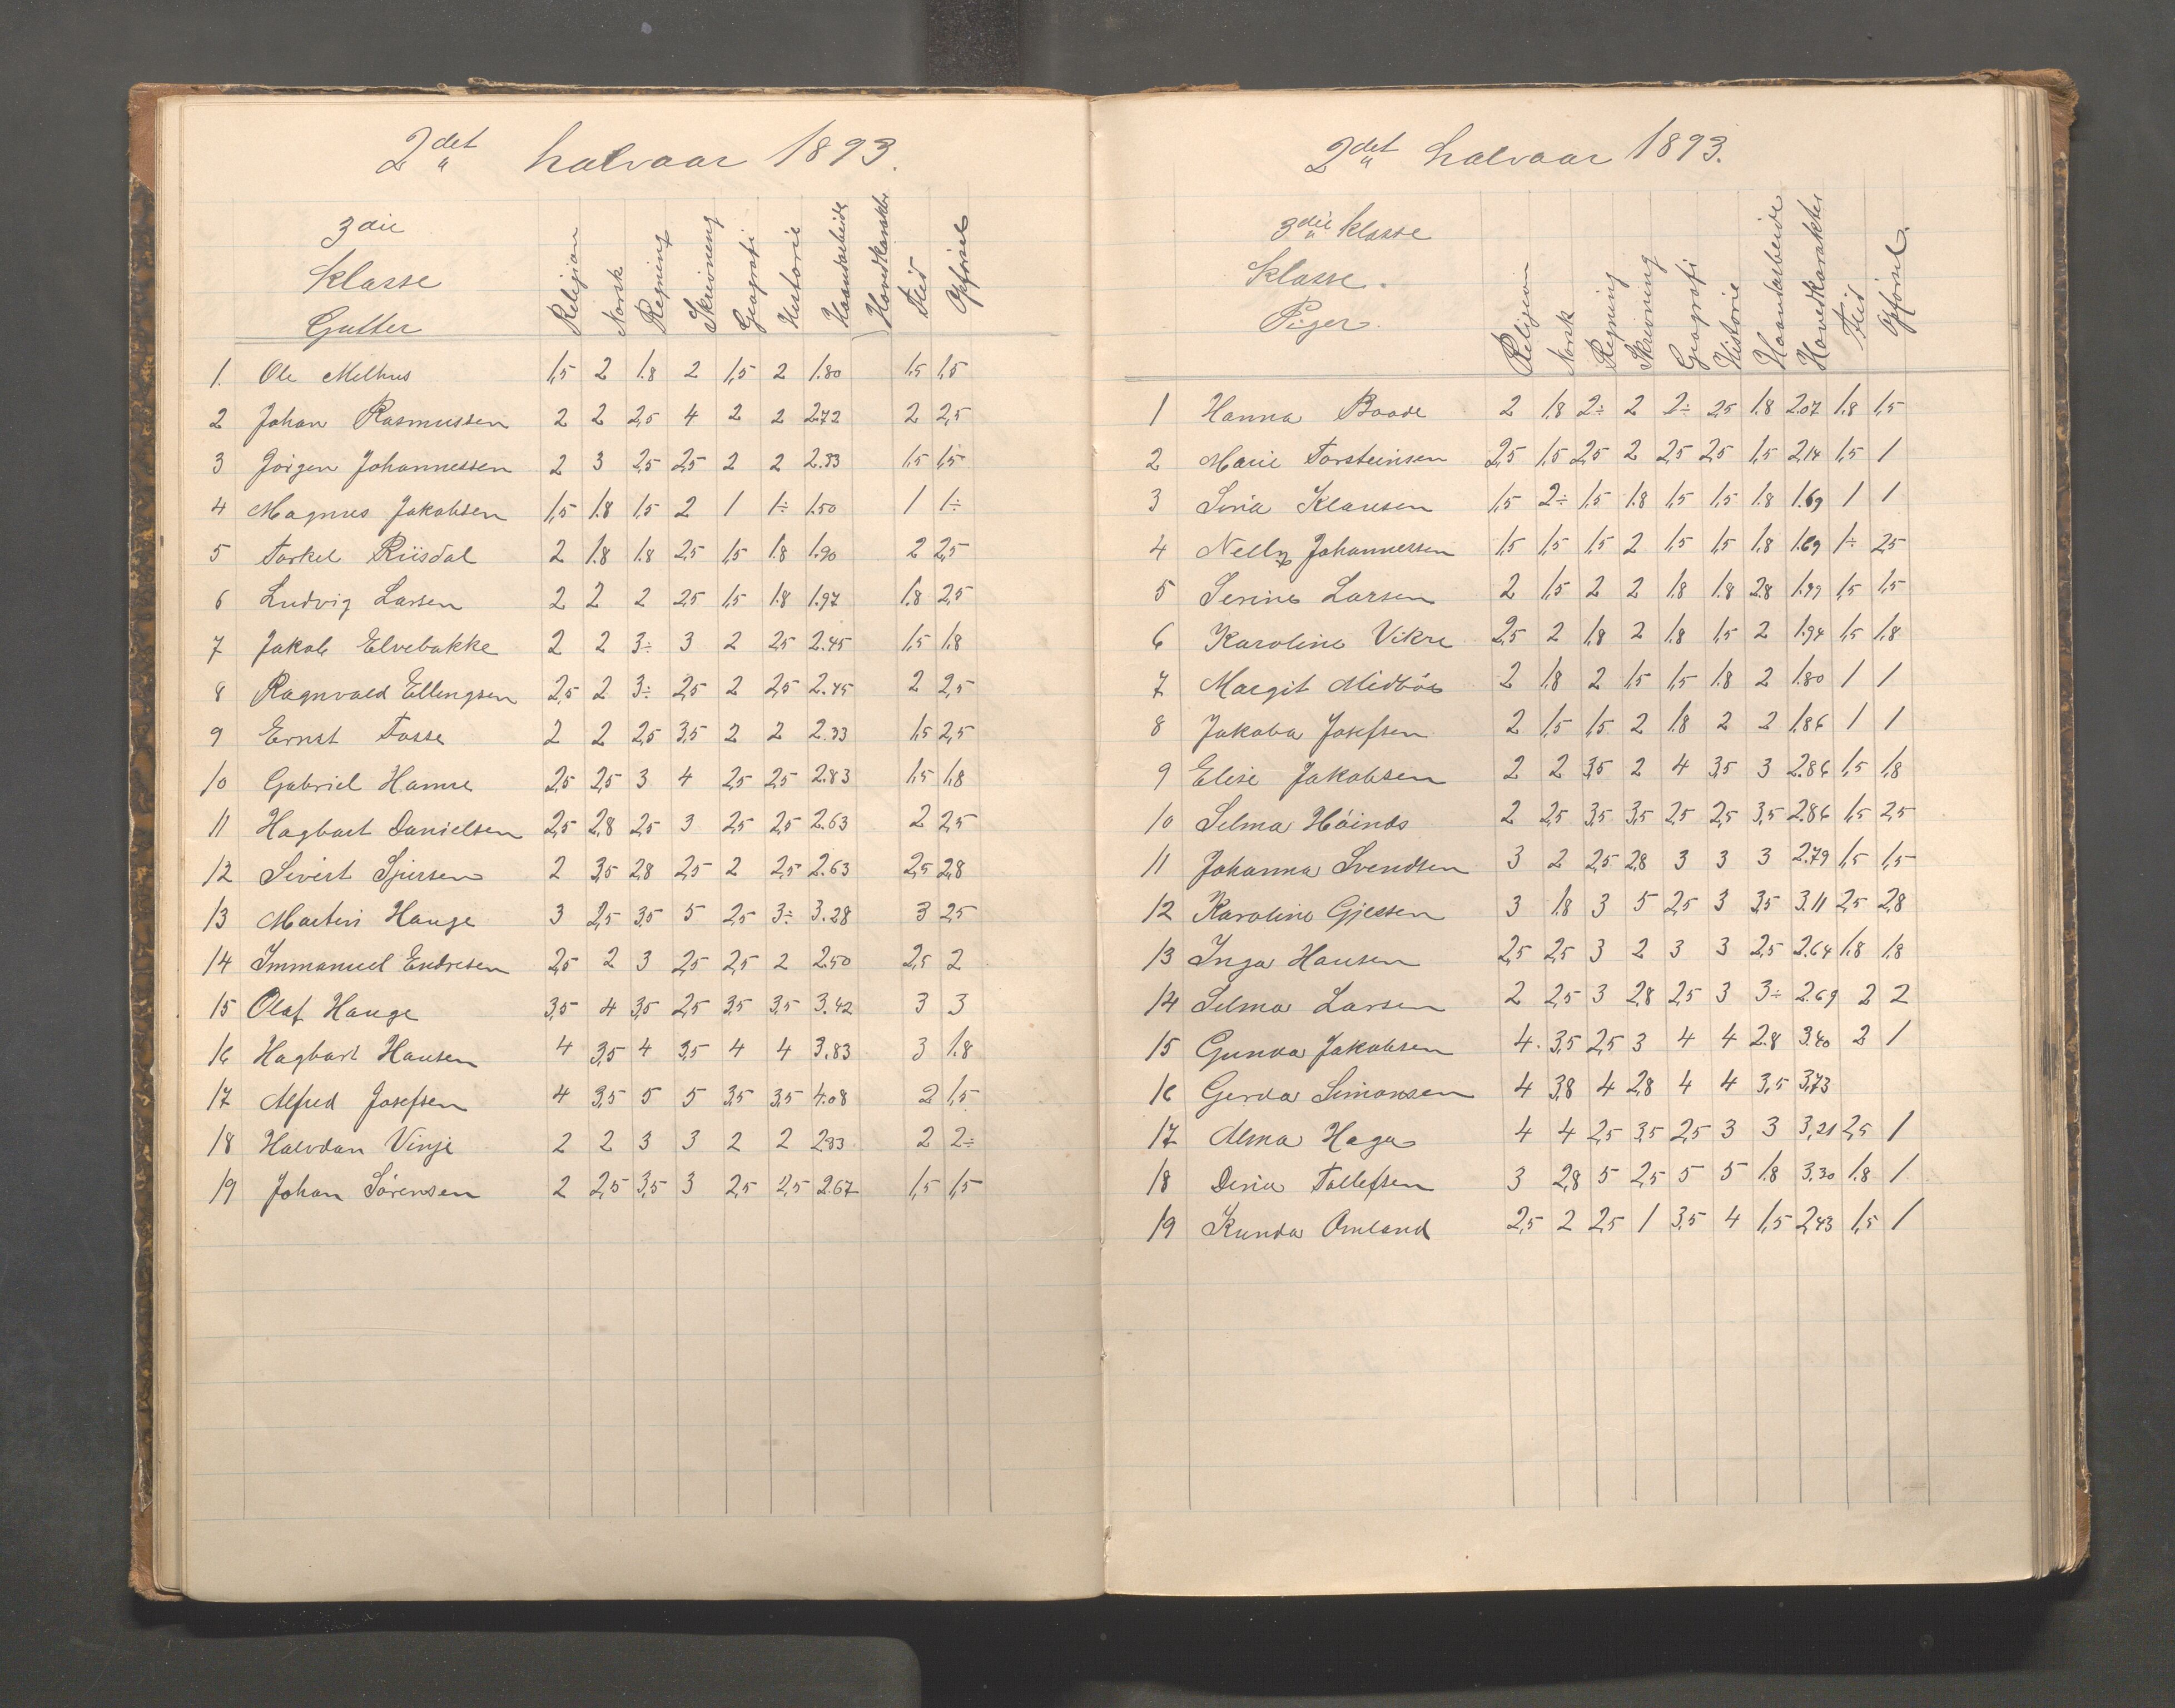 2det halvaar 1893.
3die
Klasse
Gutter
Religion Norsk Regning Skrivning Geografi Historie Haandarbeide Hovedkarakter Flid Opførsel
1. Ole Melhus 1,5 2 1.8 2 1,5 2 1.80 1.5 1,5
2 Johan Rasmussen 2 2 2,5 4 2 2 2.72 2 2,5
3 Jørgen Johannessen 2 3 2,5 2,5 2 2 2.33 1,5 1,5
4 Magnus Jakobsen 1,5 1.8 1,5 2 1 1÷ 1.50 1 1÷
5 Torkel Riisdal 2 1.8 1.8 2,5 1,5 1.8 1.90 2 2,5
6 Ludvig Larsen 2 2 2 2,5 1,5 1.8 1.97 1.8 2,5
7 Jakob Elvebakke 2 2 3÷ 3 2 2,5 2.45 1,5 1.8
8 Ragnvald Ellingsen 2,5 2 3÷ 2,5 2 2,5 2.45 2 2,5
9 Ernst Fosse 2 2 2,5 3,5 2 2 2.33 1,5 2,5
10 Gabriel Hamre 2,5 2,5 3 4 2,5 2,5 2.83 1,5 1,8
11 Hagbart Danielsen 2,5 2,8 2,5 3 2,5 2,5 2.63 2 2,5
12 Sivert Sjursen 2 3,5 2,8 2,5 2 2,5 2.63 2,5 2,8
13 Martin Hauge 3 2,5 3,5 5 2,5 3÷ 3.28 3 2,5
14 Immanuel Endresen 2,5 2 3 2,5 2,5 2 2.50 2,5 2
15 Olaf Hauge 3,5 4 3,5 2,5 3,5 3,5 3.42 3 3
16 Hagbart Hansen 4 3,5 4 3,5 4 4 3.83 3 1.8
17 Alfred Josefsen 4 3,5 5 5 3,5 3,5 4.08 2 1,5
18 Halvdan Vinje 2 2 3 3 2 2 2.33 2 2÷
19 Johan Sørensen 2 2,5 3,5 3 2,5 2,5 2.67 1,5 1,5
2det halvaar 1893.
3die klasse
Klasse.
Piger.
Religion Norsk Regning Skrivning Geografi Historie Haandarbeide Hovedkarakter Flid Opførsel.
1 Hanna Baade 2 1.8 2÷ 2 2÷ 2,5 1.8 2.07 1.8 1,5
2 Marie Torsteinsen 2,5 1,5 2,5 2 2,5 2,5 1,5 2,14 1,5 1
3 Sina Klausen 1,5 2÷ 1,5 1.8 1,5 1,5 1.8 1.69 1 1
4 Nelly Johannessen 1,5 1,5 1,5 2 1,5 1,5 1.8 1.69 1÷ 2,5
5 Serine Larsen 2 1,5 2 2 1.8 1.8 2.8 1.99 1,5 1,5
6 Karoline Vikre 2,5 2 1,8 2 1.8 1,5 2 1.94 1,5 1,8
7 Margit Midbøe 2 1.8 2 1,5 1,5 1.8 2 1.80 1 1
8 Jakoba Josefsen 2 1,5 1,5 2 1.8 2 2 1,86 1 1
9 Elise Jakobsen 2 2 3,5 2 4 3,5 3 2.86 1,5 1,8
10 Selma Høines 2 2,5 3,5 3,5 2,5 2,5 3,5 2.86 1,5 2,5
11 Johanna Svendsen 3 2 2,5 2,8 3 3 3 2.79 1,5 1,5
12 Karoline Gjessen 3 1.8 3 5 2,5 3 3,5 3.11 2,5 2,8
13 Inga Hansen 2,5 2,5 3 2 3 3 2,5 2.64 1.8 1.8
14 Selma Larsen 2 2,5 3 2,8 2,5 3 3÷ 2.69 2 2
15 Gunda Jakobsen 4. 3,5 2,5 3 4 4 2.8 3.40 2 1
16 Gerda Simonsen 4 3,8 4 2,8 4 4 3,5 3,73
17 Alma Haga 4 4 2,5 3,5 2,5 3 3 3,21 2,5 1
18 Dina Tollefsen 3 2,8 5 2,5 5 5 1.8 3,30 1.8 1
19 Kunda Omland 2,5 2 2,5 1 3,5 4 1,5 2,43 1,5 1